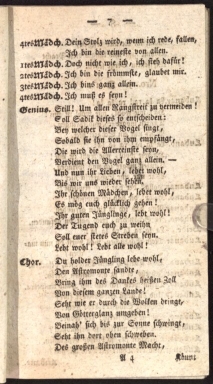 — 7 —
4tesMädch. Dein Stolz wird, wenn ich rede, fallen,
Ich bin die reineste von allen.
1tesMädch. Doch nicht wie ich, ich steh dafür!
2tesMädch. Ich bin die frömmste, glaubet mir.
3tesMädch. Ich bins ganz allein.
4tesMädch. Ich muß es seyn!
Genius. Still! Um allen Rangstreit zu vermeiden!
Soll Sadik dieses so entscheiden:
Bey welcher dieser Vogel singt,
Sobald sie ihn von ihm empfängt,
Die wird die Allerreinste seyn,
Verdient den Vogel ganz allein. —
Und nun ihr Lieben, lebet wohl,
Bis wir uns wieder sehen,
Ihr schönen Mädchen, lebet wohl,
Es mög euch glücklich gehen!
Ihr guten Jünglinge, lebt wohl!
Der Tugend euch zu weihn,
Soll euer stetes Streben seyn.
Lebt wohl! Lebt alle wohl!
Chor. Du holder Jüngling lebe wohl,
Den Astromonte sandte,
Bring ihm des Dankes heißen Zoll
Von diesem ganzen Lande!
Seht wie er durch die Wolken dringt,
Von Götterglanz umgeben!
Beinah' sich bis zur Sonne schwingt,
Seht ihn dort oben schweben.
Des großen Astromonte Macht,
A 4